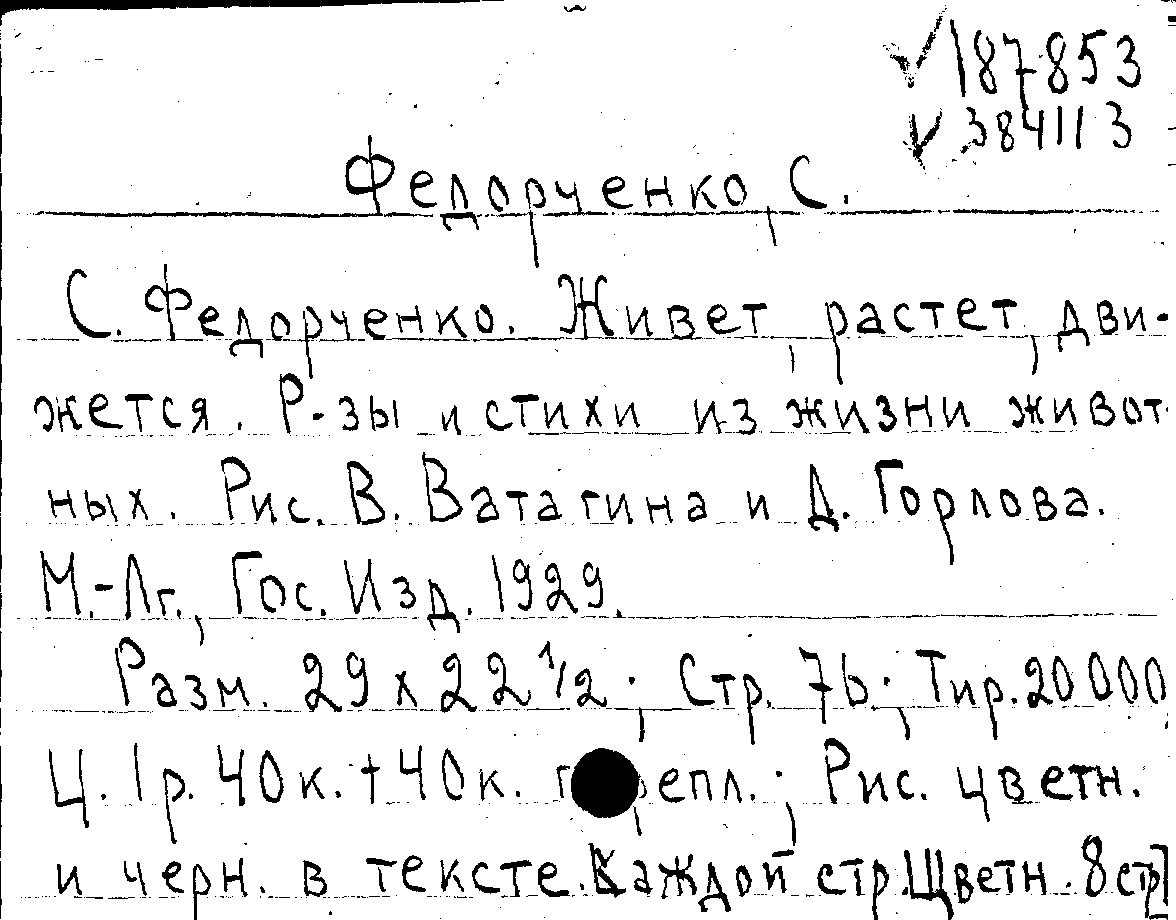 187853
384113
Федорченко, С.
С. Федорченко. Живет, растет, дви-
жется. Р-зы и стихи из жизни живот-
ных. Рис. В. Ватагина и Д. Горлова.
М.-Лг., Гос. Изд. 1929.
Разм. 29 х 22 1/2; Стр. 76; Тир. 20000,
Ц. 1р. 40к. + 40к. переепл.; Рис. цветн.
и черн. в тексте. Каждой стр. Цветн. 8 стр]